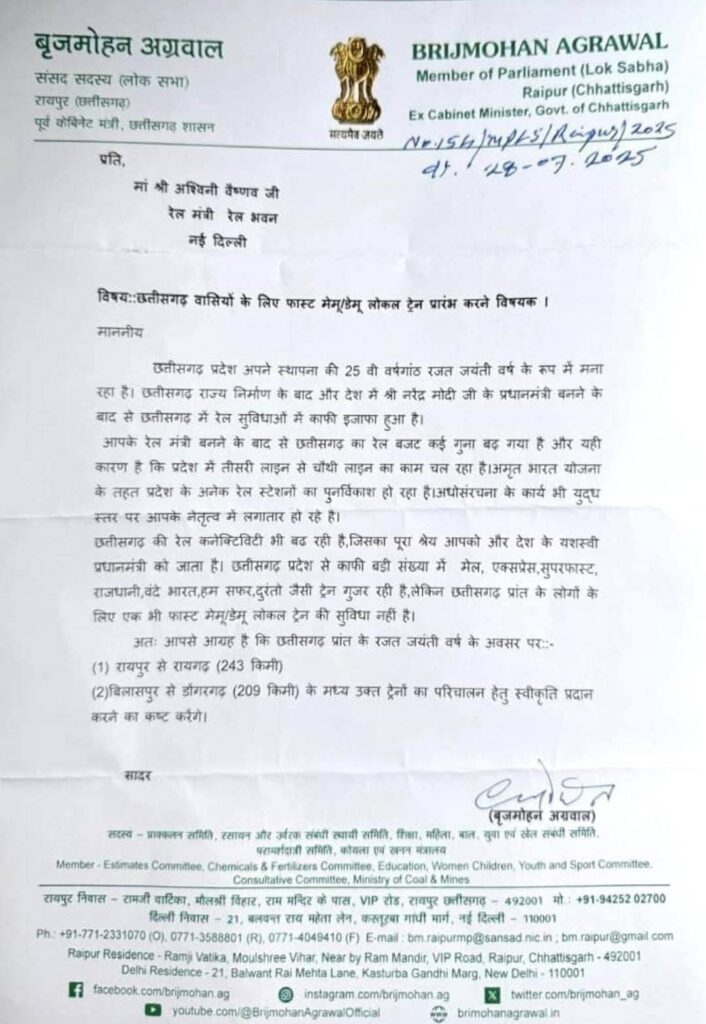 बृजमोहन अग्रवाल
संसद सदस्य (लोक सभा)
रायपुर (छत्तीसगढ़)
पूर्व केबिनेट मंत्री, छत्तीसगढ़ शासन
सत्यमेव जयते
BRIJMOHAN AGRAWAL
Member of Parliament (Lok Sabha)
Raipur (Chhattisgarh)
Ex Cabinet Minister, Govt. of Chhattisgarh
No.154/MPLS/Raipur/2025
dt. 28-07.2025
प्रति,
मां श्री अश्विनी वैष्णव जी
रेल मंत्री रेल भवन
नई दिल्ली
विषय::छत्तीसगढ़ वासियों के लिए फास्ट मेमू/डेमू लोकल ट्रेन प्रारंभ करने विषयक ।
माननीय
छत्तीसगढ़ प्रदेश अपने स्थापना की 25 वी वर्षगांठ रजत जयंती वर्ष के रूप में मना
रहा है। छत्तीसगढ़ राज्य निर्माण के बाद और देश में श्री नरेंद्र मोदी जी के प्रधानमंत्री बनने के
बाद से छत्तीसगढ़ में रेल सुविधाओं में काफी इजाफा हुआ है।
आपके रेल मंत्री बनने के बाद से छत्तीसगढ़ का रेल बजट कई गुना बढ़ गया है और यही
कारण है कि प्रदेश में तीसरी लाइन से चौथी लाइन का काम चल रहा है।अमृत भारत योजना
के तहत प्रदेश के अनेक रेल स्टेशनों का पुनर्विकाश हो रहा है।अधोसंरचना के कार्य भी युद्ध
स्तर पर आपके नेतृत्व में लगातार हो रहे है।
छत्तीसगढ़ की रेल कनेक्टिविटी भी बढ रही है,जिसका पूरा श्रेय आपको और देश के यशस्वी
प्रधानमंत्री को जाता है। छत्तीसगढ़ प्रदेश से काफी बड़ी संख्या में मेल, एक्सप्रेस,सुपरफास्ट,
राजधानी,वंदे भारत,हम सफर,दुरंतो जैसी ट्रेन गुजर रही है,लेकिन छत्तीसगढ़ प्रांत के लोगों के
लिए एक भी फास्ट मेमू/डेमू लोकल ट्रेन की सुविधा नहीं है।
अतः आपसे आग्रह है कि छत्तीसगढ़ प्रांत के रजत जयंती वर्ष के अवसर पर::-
(1) रायपुर से रायगढ़ (243 किमी)
(2)बिलासपुर से डोंगरगढ़ (209 किमी) के मध्य उक्त ट्रेनों का परिचालन हेतु स्वीकृति प्रदान
करने का कष्ट करेंगे।
सादर
(बृजमोहन अग्रवाल)
सदस्य – प्राक्कलन समिति, रसायन और उर्वरक संबंधी स्थायी समिति, शिक्षा, महिला, बाल, युवा एवं खेल संबंधी समिति,
परामर्शदात्री समिति, कोयला एवं खनन मंत्रालय
Member - Estimates Committee, Chemicals & Fertilizers Committee, Education, Women Children, Youth and Sport Committee.
Consultative Committee, Ministry of Coal & Mines
रायपुर निवास – रामजी वाटिका, मौलश्री विहार, राम मन्दिर के पास, VIP रोड, रायपुर छत्तीसगढ़ – 492001 मो.: +91-94252 02700
दिल्ली निवास – 21, बलवन्त राय मेहता लेन, कस्तूरबा गांधी मार्ग, नई दिल्ली – 110001
Ph.: +91-771-2331070 (O), 0771-3588801 (R), 0771-4049410 (F) E-mail : bm.raipurmp@sansad.nic.in ; bm.raipur@gmail.com
Raipur Residence - Ramji Vatika, Moulshree Vihar, Near by Ram Mandir, VIP Road, Raipur, Chhattisgarh - 492001
Delhi Residence - 21, Balwant Rai Mehta Lane, Kasturba Gandhi Marg, New Delhi - 110001
facebook.com/brijmohan.ag instagram.com/brijmohan.ag twitter.com/brijmohan_ag
youtube.com/@BrijmohanAgrawalOfficial brimohanagrawal.in